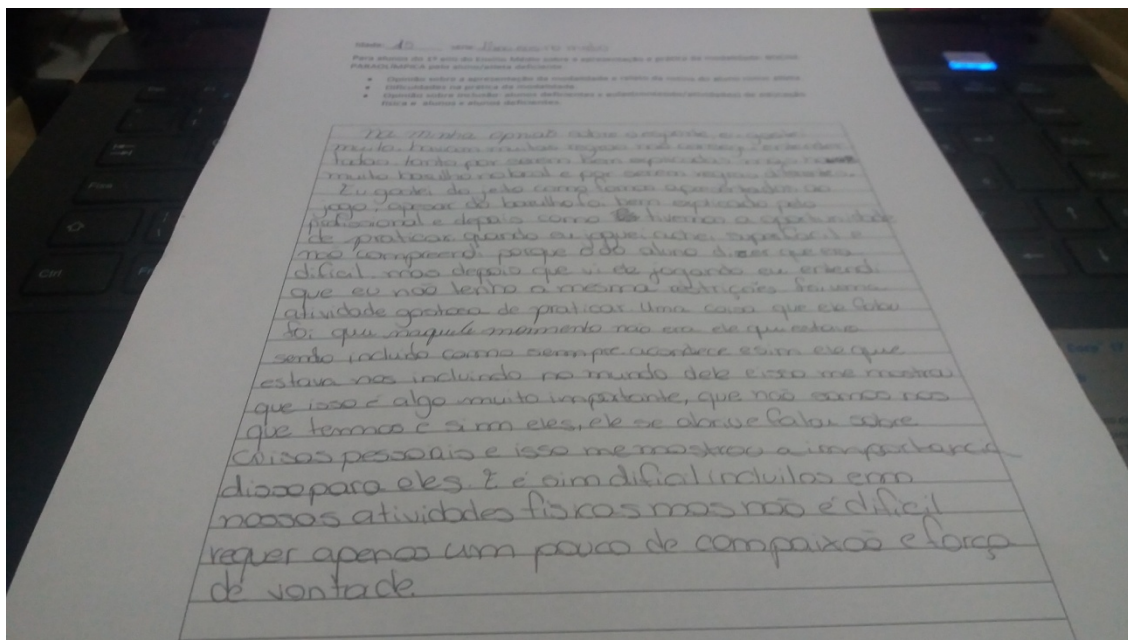 Idade: 15
Para alunos do 1º ano do Ensino Médio sobre a apresentação e prática da modalidade: BOCHA
PARAOLÍMPICA pelo aluno/atleta deficiente
• Opinião sobre a apresentação da modalidade e relato da rotina do aluno como atleta.
• Dificuldades na prática da modalidade.
• Opinião sobre inclusão: alunos deficientes e aulas/conteúdo/atividades de educação
física e alunos e alunos deficientes.
Na minha opinião sobre eu gostei
muito haviam muitas regras
todas tanto por serem bem explicadas
muito barulho no local e por serem regras diferentes.
Eu gostei do jeito como foram apresentados ao
jogo, apesar do barulho foi bem explicado pelo
profissional e depois como tivemos a oportunidade
de praticar, quando eu joguei achei super facil e
não compreendi porque o do aluno dizer que era
dificial mas depois que vi ele jogando eu entendi
que eu não tenho a mesma restrições foi uma
atividade gostosa de praticar. Uma coisa que ele falou
foi que naquele momento não era ele que estava
sendo incluido como sempre acontece e sim ele que
estava nos incluindo no mundo dele e isso me mostrou
que isso é algo muito importante, que não somos nos
que temos e sim eles, ele se abriu e falou sobre
coisas pessoais e isso me mostrou a importancia
disso para eles. E é sim dificial incluilos em
nossas atividades fisicas mas não é dificil
requer apenas um pouco de compaixão e força
de vontade.
Ctrl
Fn